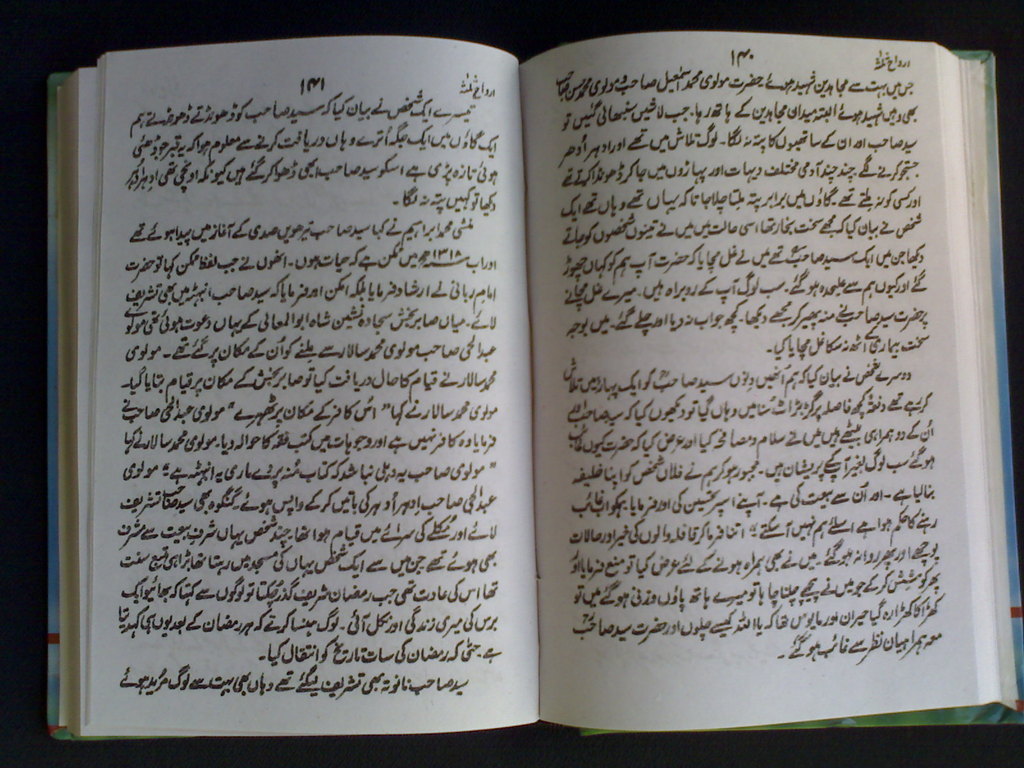 ارواح ثلٰثہ
۱۴۰
جس میں بہت سے مجاہدین شہید ہوئے حضرت مولوی محمد اسمٰعیل صاحب و مولوی محمد حسن صاحب
بھی وہیں شہید ہوئے البتہ میدان مجاہدین کے ہاتھ رہا۔ جب لاشیں سنبھالی گئیں تو
سید صاحب اور ان کے ساتھیوں کا پتہ نہ لگا۔ لوگ تلاش میں تھے اور ادہر اُدھر
جستجو کرنے لگے چند چند آدمی مختلف دیہات اور پہاڑوں میں جا کر ڈھونڈا کرتے تھے
اور کسی کو نہ ملتے تھے۔ گاؤں میں برابر پتہ ملتا چلا جاتا کہ یہاں تھے وہاں تھے ایک
شخص نے بیان کیا کہ مجھے سخت بخار تھا اسی حالت میں میں نے تینوں شخصوں کو جاتے
دیکھا جن میں ایک سید صاحبؒ تھے میں نے غل مچایا کہ حضرت آپ ہم کو کہاں چھوڑ
گئے اور کیوں ہم سے علیحدہ ہو گئے۔ سب لوگ آپ کے روبراہ ہیں۔ میرے غل مچانے
پر حضرت سید صاحب نے منہ پھیر کر مجھے دیکھا۔ کچھ جواب نہ دیا اور چلے گئے۔ میں بوجہ
سخت بیماری اُٹھ نہ سکا غل مچایا کیا۔
دوسرے شخص نے بیان کیا کہ ہم انھیں دِنوں سید صاحبؒ کو ایک پہاڑ میں تلاش
کر رہے تھے دفعۃً کچھ فاصلہ پر گڑبڑاہٹ سنا میں وہاں گیا تو دیکھوں کیا کہ سید صاحب اور
اُن کے دو ہمراہی بیٹھے ہیں میں نے سلام و مصافحہ کیا اور عرض کیا کہ حضرت کیوں غائب
ہو گئے سب لوگ بغیر آپکے پریشان ہیں۔ مجبور ہو کر ہم نے فلاں شخص کو اپنا خلیفہ
بنالیا ہے۔ اور اُن سے بیعت کی ہے۔ آپنے اسپر تحسین کی اور فرمایا۔ ہمکو اب غائب
رہنے کا حکم ہوا ہے اسلئے ہم نہیں آ سکتے۔ اتنا فرما کر قافلہ والوں کی خیر اور حالات
پوچھے اور پھر روانہ ہو گئے۔ میں نے بھی ہمراہ ہونے کے لئے عرض کیا تو منع فرمایا اور
پھر کوشش کر کے جو میں نے پیچھے چلنا چاہا تو میرے ہاتھ پاؤں وزنی ہو گئے میں تو
کھڑا کا کھڑا رہ گیا حیران اور مایوس تھا کہ یا اللہ کیسے چلوں اور حضرت سید صاحبؒ
معہ ہمراہیان نظر سے غائب ہو گئے۔
ارواح ثلٰثہ
۱۴۱
تیسرے ایک شخص نے بیان کیا کہ سید صاحب کو ڈھونڈتے ڈھونڈتے ہم
ایک گاؤں میں ایک جگہ اُترے وہاں دریافت کرنے سے معلوم ہوا کہ یہ قبر جو ڈھئی
ہوئی تازہ پڑی ہے اسکو سید صاحب ابھی ڈھوا کر گئے ہیں کیونکہ اونچی تھی ادہر اُدہر
دیکھا تو کہیں پتہ نہ لگا۔
منشی محمد ابراہیم نے کہا سید صاحب تیرھویں صدی کے آغاز میں پیدا ہوئے تھے
اور اب ۱۳۱۸ھ ہیں ممکن ہے کہ حیات ہوں۔ انھوں نے جب لفظ ممکن کہا تو حضرت
امام ربانی نے ارشاد فرمایا بلکہ امکن اور فرمایا کہ سید صاحب انہبٹہ میں بھی تشریف
لائے۔ میاں صابر بخش سجادہ نشین شاہ ابوالمعالی کے یہاں دعوت ہوئی تھی مولوی
عبدالحی صاحب مولوی محمد سالار سے ملنے کو اُن کے مکان پر گئے تھے۔ مولوی
محمد سالار نے قیام کا حال دریافت کیا تو صابر بخش کے مکان پر قیام بتایا گیا۔
مولوی محمد سالار نے کہا "اُس کافر کے مکان پر ٹھہرے" مولوی عبدالحی صاحب نے
فرمایا وہ کافر نہیں ہے اور وجوہات میں کتب فقہ کا حوالہ دیا۔ مولوی محمد سالار نے کہا
"مولوی صاحب یہ دہلی نباشد کہ کتاب سُنہ پر دے ماری یہ انہبٹہ ہے" مولوی
عبدالحی صاحب ادہر اُدہر کی باتیں کر کے واپس ہوئے۔ گنگوہ بھی سید صاحب تشریف
لائے اور مسکلے کی سرائے میں قیام ہوا تھا۔ چند شخص یہاں شرف بیعت سے مشرف
بھی ہوئے تھے جن میں سے ایک شخص یہاں کی مسجد میں رہتا تھا بڑا ہی متبع سنت
تھا اس کی عادت تھی جب رمضان شریف گذر چکتا تو لوگوں سے کہتا کہ بھائیو ایک
برس کی میری زندگی اور نکل آئی۔ لوگ ہنسا کرتے کہ ہر رمضان کے بعد یوں ہی کہہ دیتا
ہے۔ حتیٰ کہ رمضان کی سات تاریخ کو انتقال کیا۔
سید صاحب نانوتہ بھی تشریف لیگئے تھے وہاں بھی بہت سے لوگ مُرید ہوئے